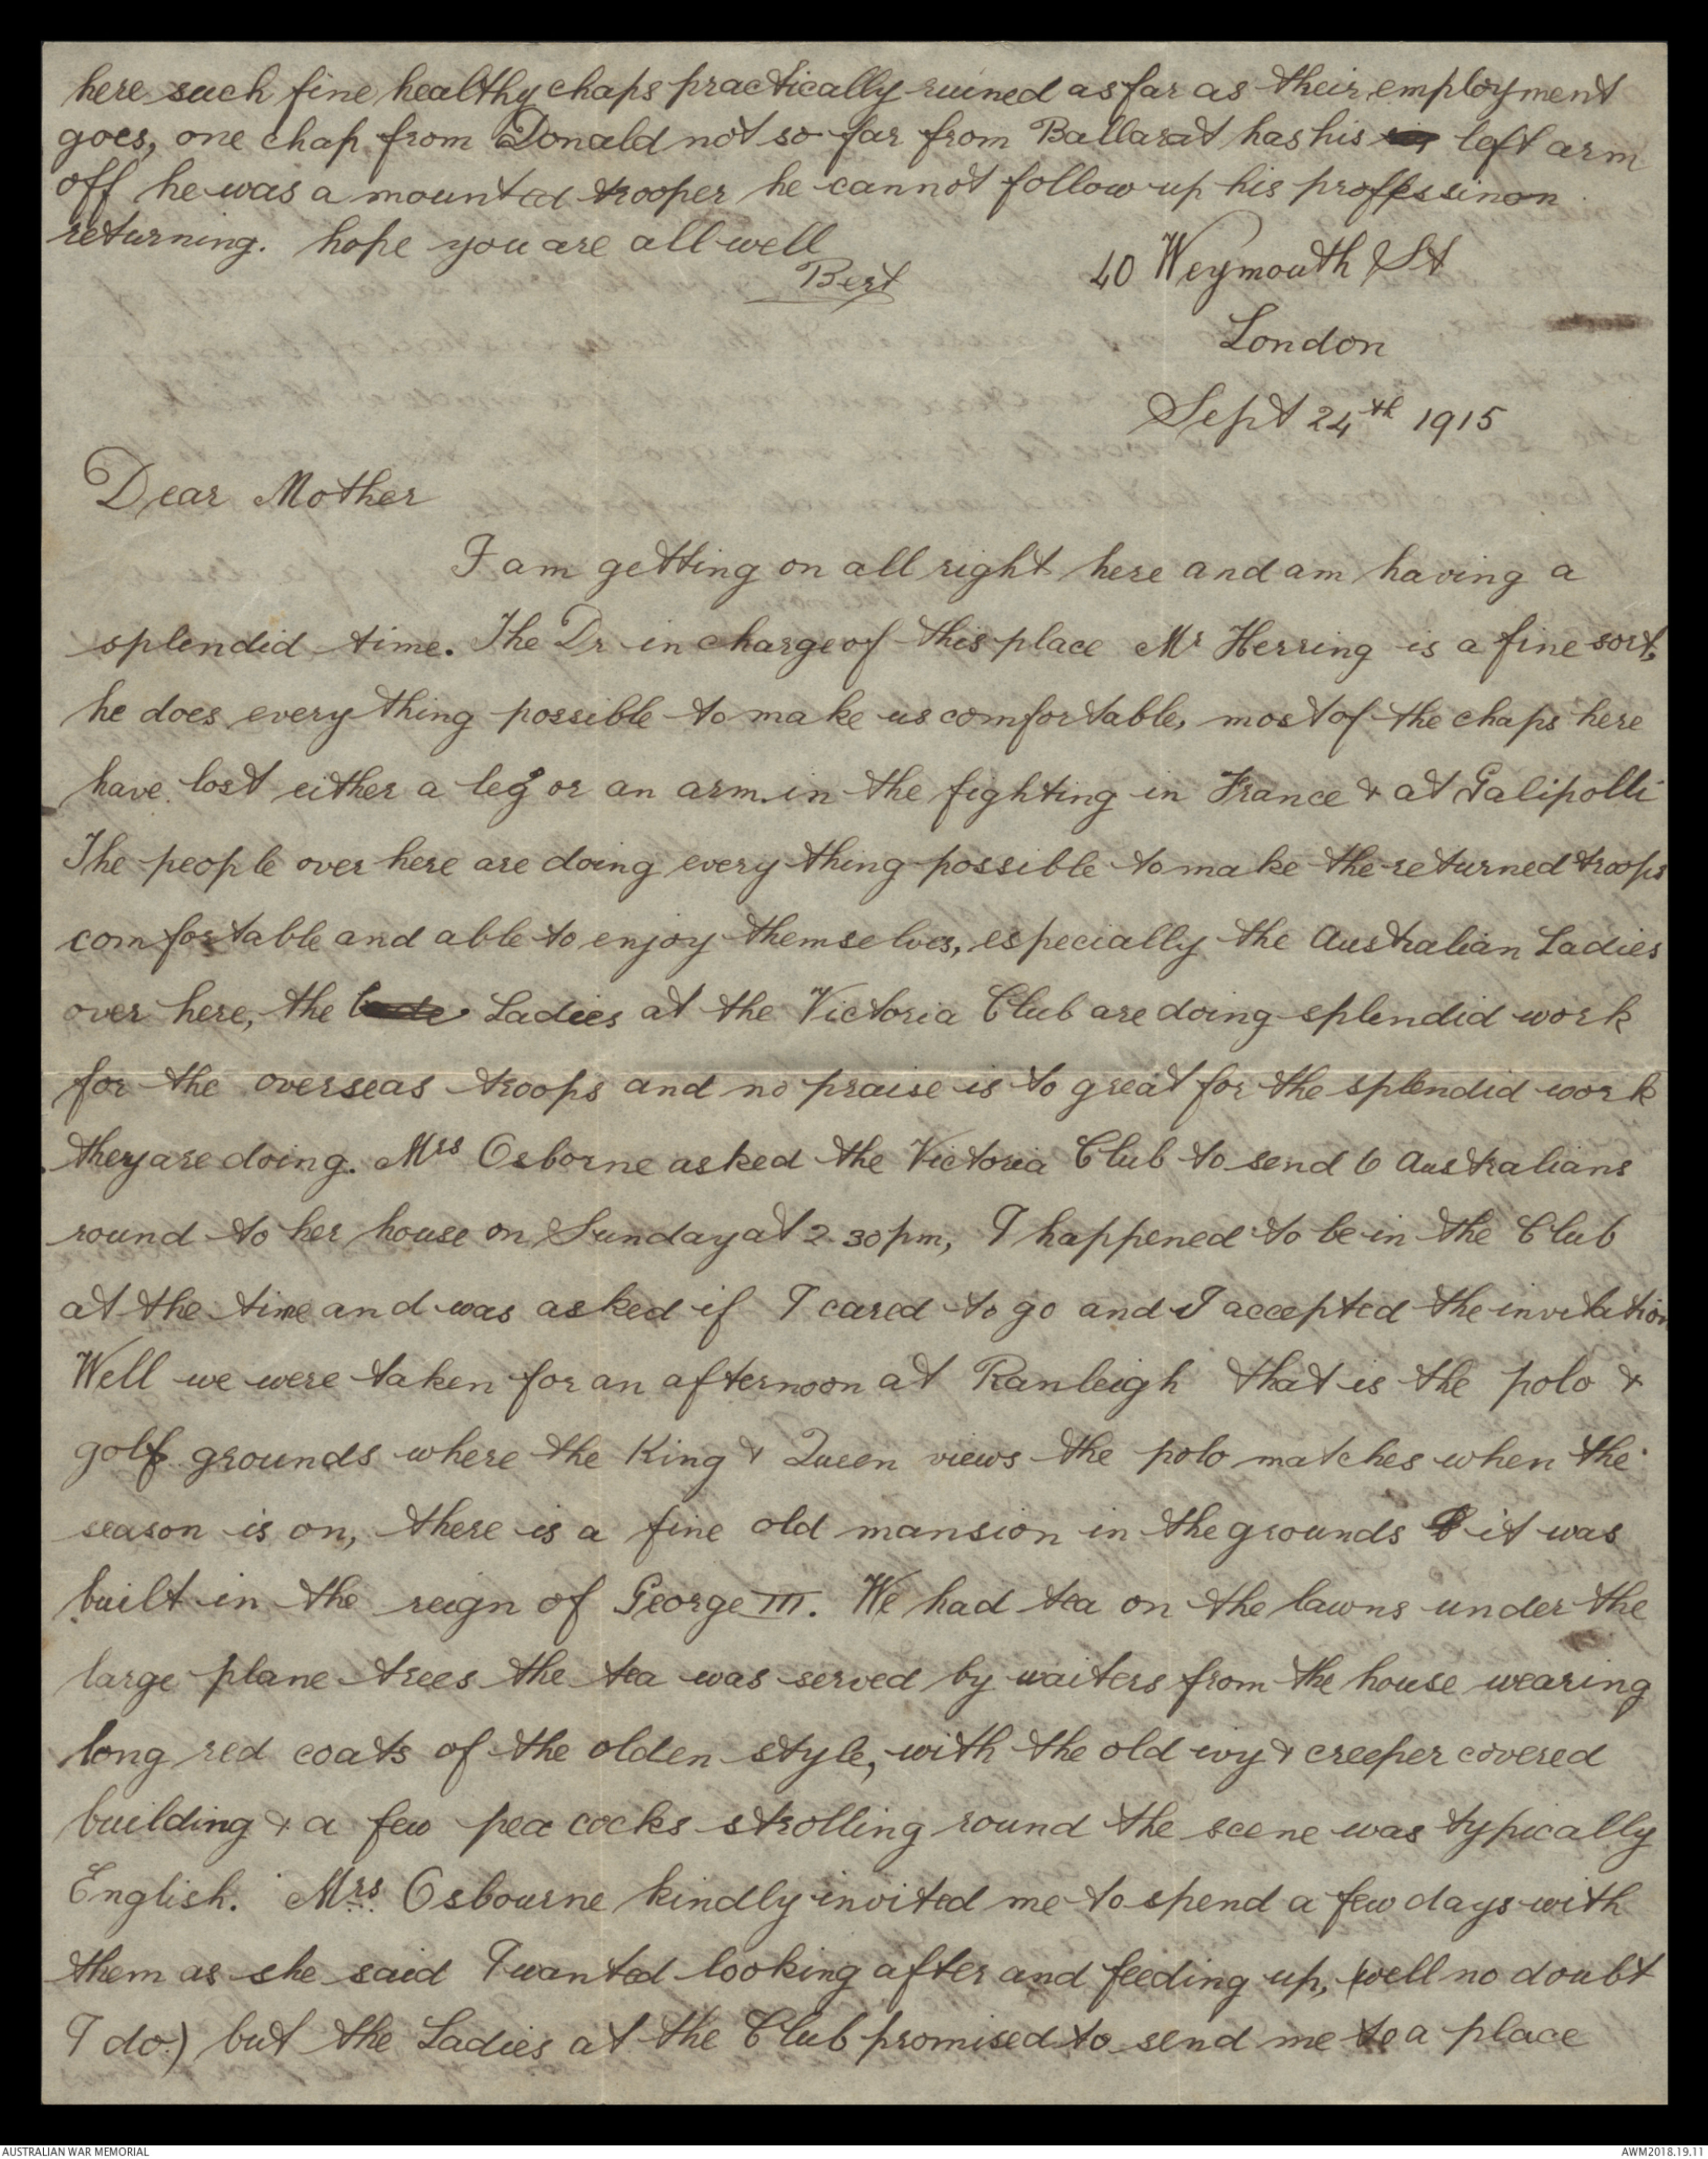 here such fine healthy chaps practically ruined as far as their employment
goes, one chap from Donald not so far from Ballarat has his left arm
off he was a mounted trooper he cannot follow up his proffessinon
returning. hope you are all well
Bert
40 Weymouth St
London
Sept 24th 1915
Dear Mother
I am getting on all right here and am having a
splendid time. The Dr in charge of this place Mr Herring is a fine sort,
he does everything possible to make us comfortable, most of the chaps here
have lost either a leg or an arm in the fighting in France & at Galipolli
The people over here are doing every thing possible to make the returned troops
comfortable and able to enjoy themselves, especially the Australian Ladies
over here, the Ladies at the Victoria Club are doing splendid work
for the overseas troops and no praise is to great for the splendid work
they are doing. Mrs Osborne asked the Victoria Club to send 6 Australians
round to her house on Sunday at 2.30pm, I happened to be in the Club
at the time and was asked if I cared to go and I accepted the invitation
Well we were taken for an afternoon at Ranleigh that is the polo &
golf grounds where the King & Queen views the polo matches when the
season is on, there is a fine old mansion in the grounds it was
built in the reign of George III. We had tea on the lawns under the
large plane trees the tea was served by waiters from the house wearing
long red coats of the olden style, with the old ivy & creeper covered
building & a few pea cocks strolling round the scene was typically
English. Mrs. Osbourne kindly invited me to spend a few days with
them as she said I wanted looking after and feeding up, (well no doubt
I do.) but the Ladies at the Club promised to send me to a place
AUSTRALIAN WAR MEMORIAL
AWM2018.19.11